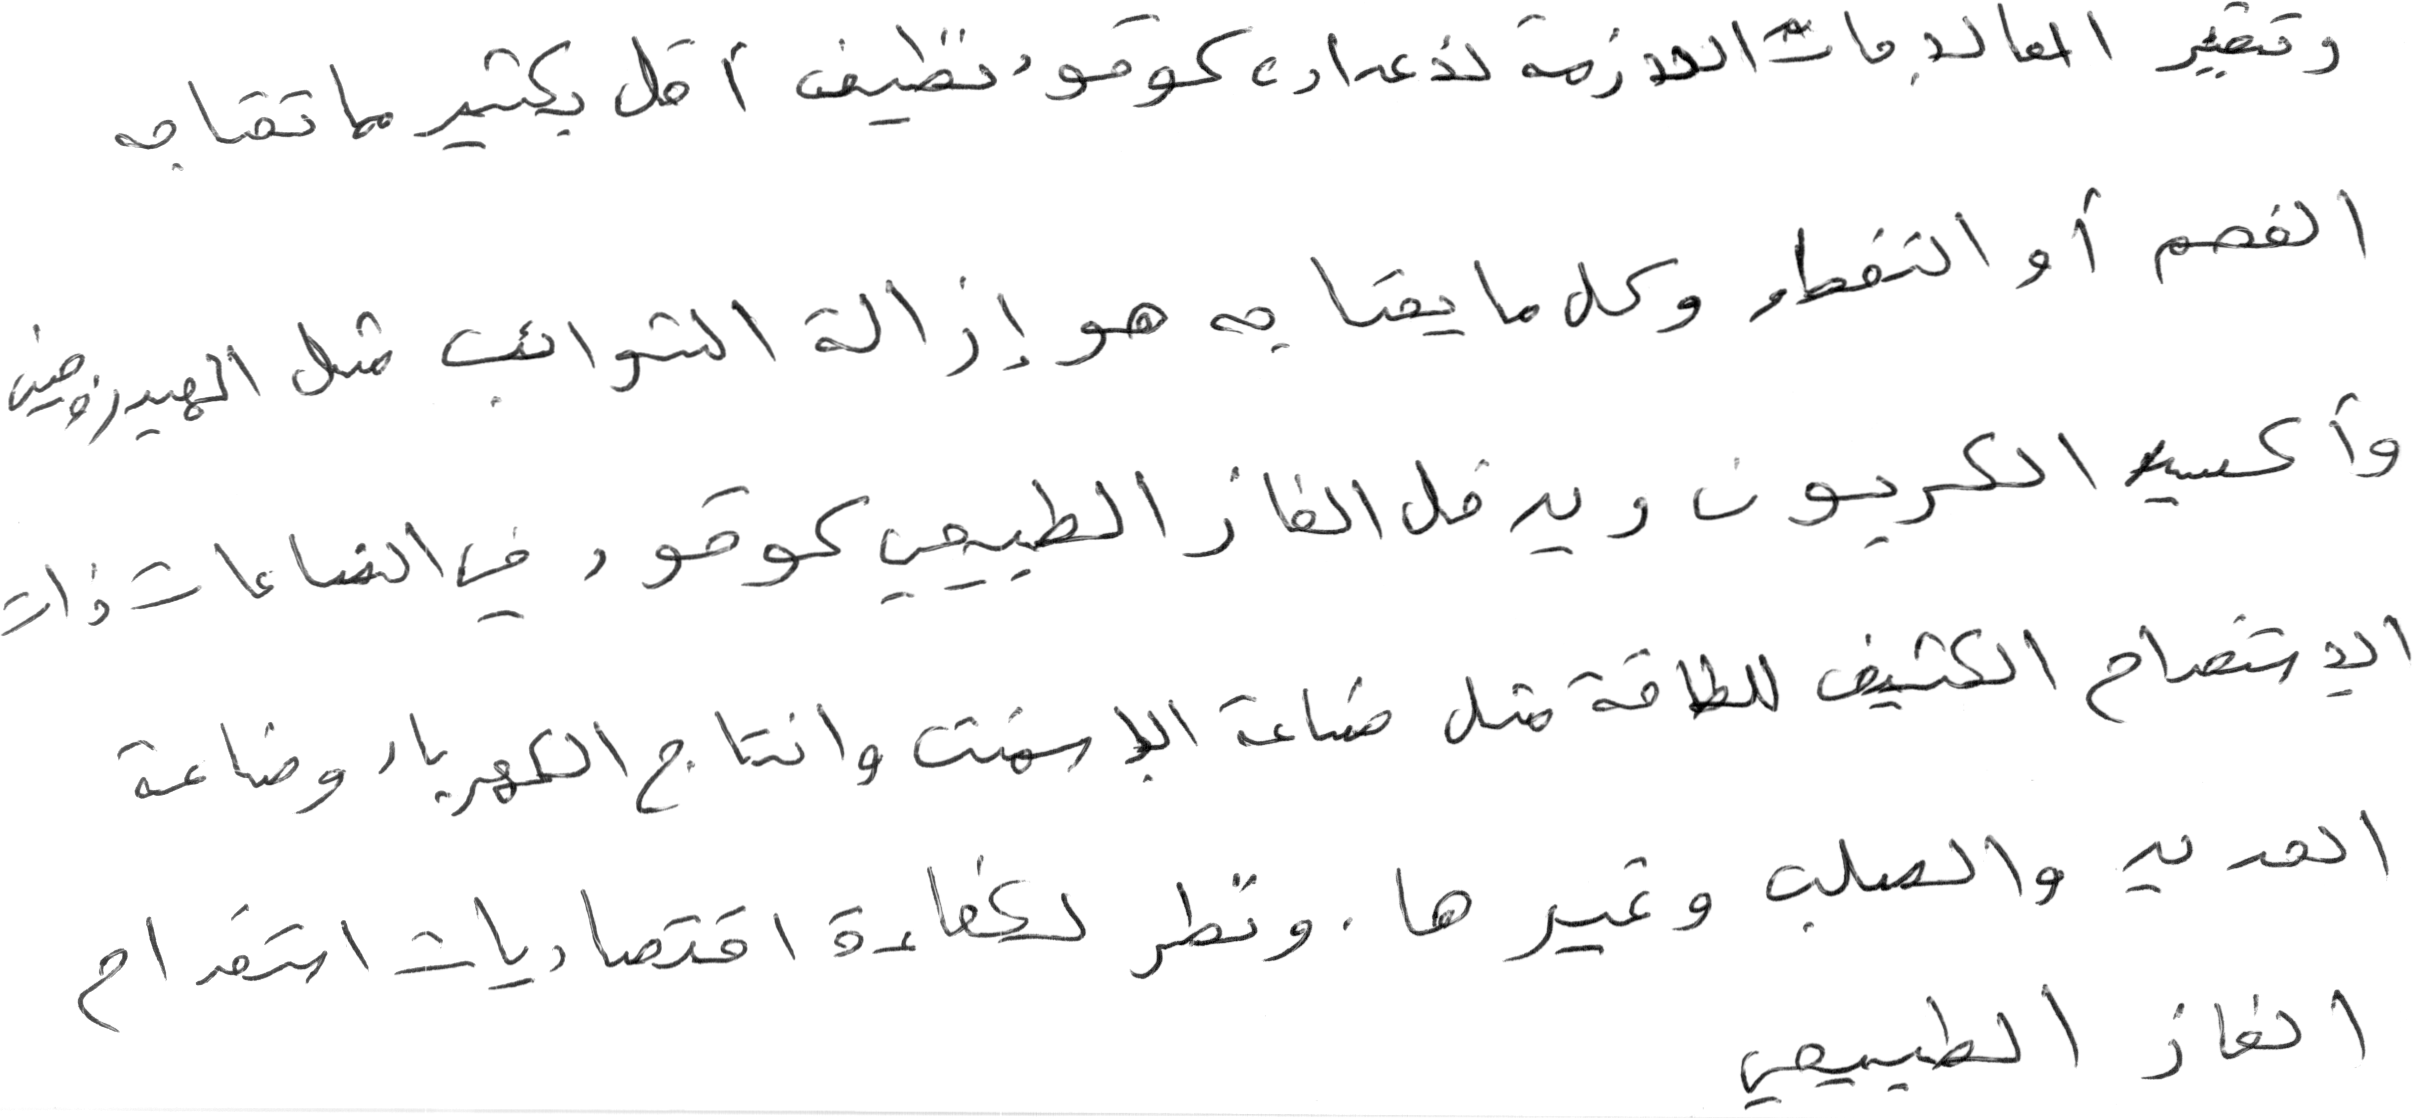 وتعتبر المعالجات اللازمة لإعداده كوقود نظيف أقل بكثير مما تحتاجه
الفحم أو النفط وكل ما يحتاجه هو إزالة الشوائب مثل الهيدروجين
وأكسيد الكربون ويدخل الغاز الطبيعي كوقود في الصناعات ذات
الاستخدام الكثيف للطاقة مثل صناعة الإسمنت وانتاج الكهرباء وصناعة
الحديد والصلب وغيرها. ونظر لكفاءة اقتصاديات استخدام
الغاز الطبيعي